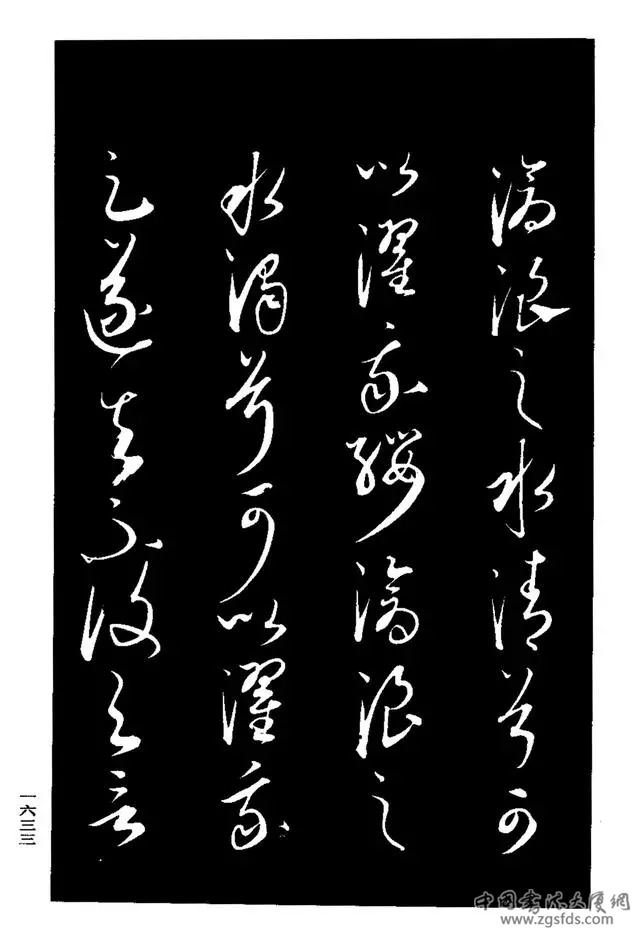 滄浪之水清兮可
以濯我纓滄浪之
水濁兮可以濯我
足遂去不復與言
一六三三
中國书法大厦網
www.zgsfds.com